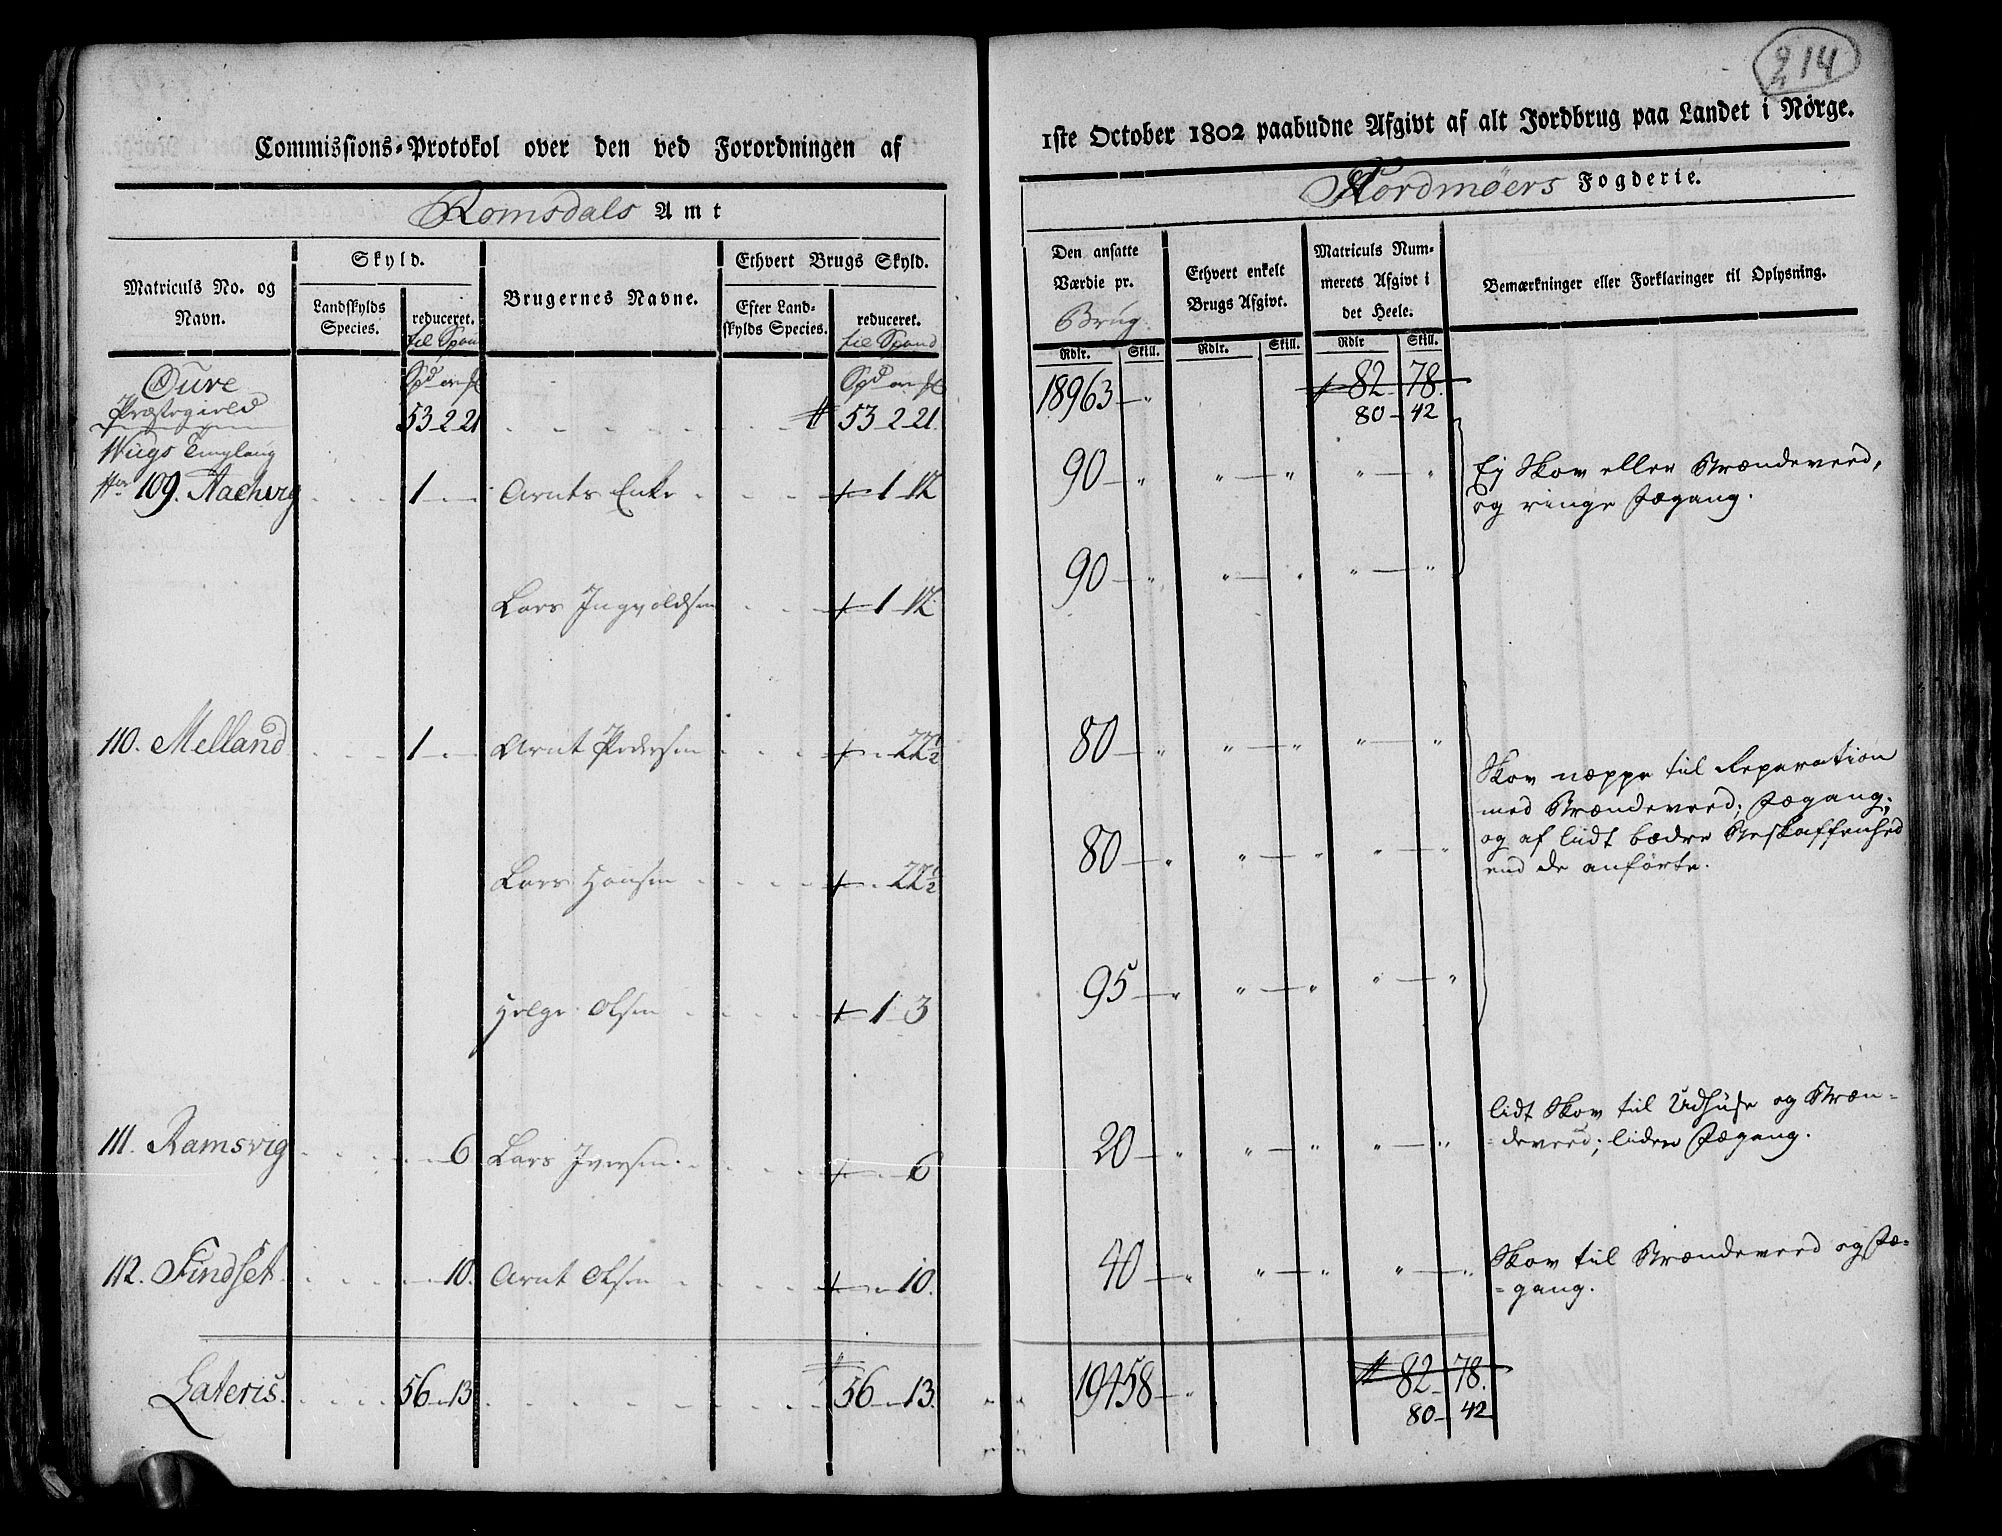 214
Commissions-Protokol over den ved Forordningen af
1ste October 1802 paabudne Afgivt af alt Jordbrug paa Landet i Nörge.
Romsdals Amt
Nordmøers Fogderie.
Matriculs No. og Navn.
Skyld.
Landskylds Species.
reduceret. til Spand
Brugernes Navne.
Ethvert Brugs Skyld.
Efter Landskylds Species.
reduceret. til Spand
Den ansatte Værdie pr. Brug.
Ethvert enkelt Brugs Afgivt.
Matriculs Nummerets Afgivt i det Heele.
Bemærkninger eller Forklaringer til Oplysning.
Rdlr. Skill. Rdlr. Skill. Rdlr Skill.
Øure
Præstegield 53 - 2 - 21 53 - 2 - 21. 18963 - " 82 - 78.
80 - 42
109. Aachvig 1 Arnts Enke 1 - 12 90 - " " - " " - " Ej Skov eller Brændeveed,
og ringe Fægang.
Lars Ingvoldsen 1 - 12 90 - " " - " " - "
110. Melland 1 Arnt Pedersen 22½ 80 - " " - " " - "
Skov næppe til Reparation
med Brændeveed; Fægang;
og af liidt bædre Beskaffenhed
end de anførte.
Lars Hansen 22½ 80 - " " - " " - "
Helge Olsen 1 - 3 95 - " " - " " - "
111. Ramsvig 6 Lars Iversen 6 20 - " " - " " - " lidt Skov til Udhuse og Bræn=
=deveed; liden Fægang.
112. Findset 10. Arnt Olsen 10. 40 - " " - " " - " Skov til Brændeveed og Fæ=
=gang.
Lateris. 56 - " - 13 56 - " - 13. 19458 - " 82 - 78.
80 - 42